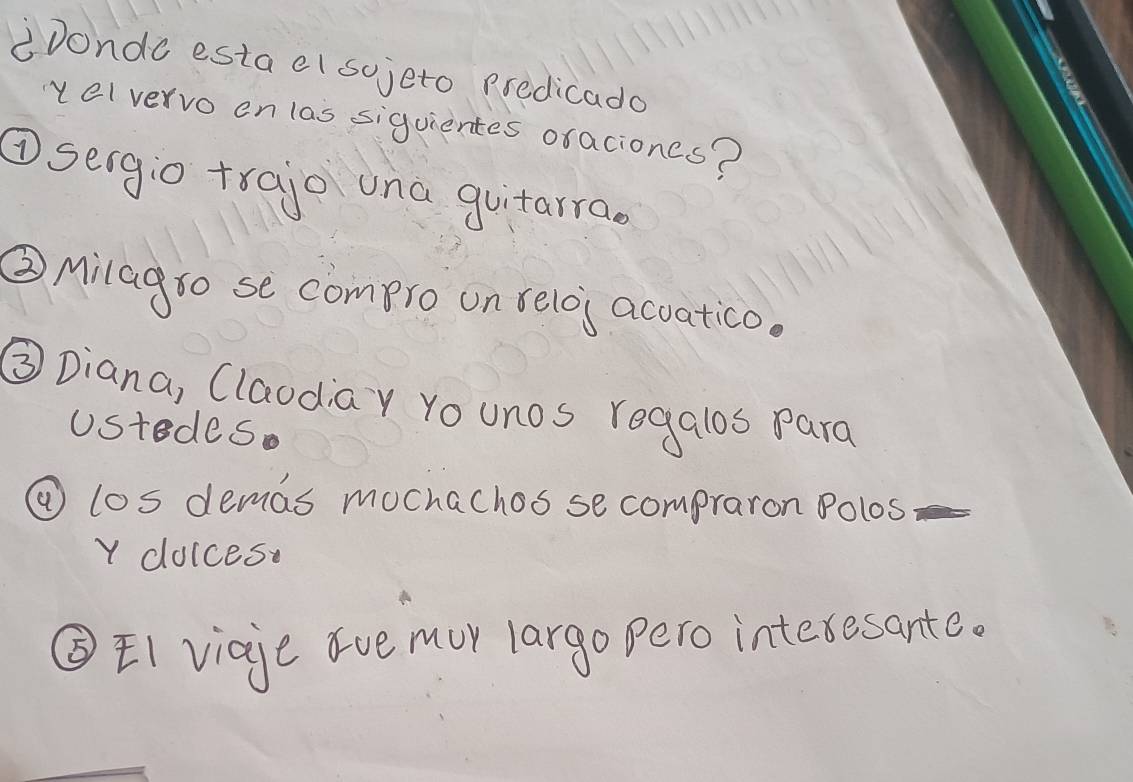 ¿Donde esta el sujeto predicado
y el vervo en las siguientes oraciones?
① sergio trajo una guitarra.
② Milagro se compro un reloj acuatico.
③ Diana, Claudia y yo unos regalos para
ustedes.
④ los demás muchachos se compraron polos
y dulces.
⑤ El viaje fue muy largo pero interesante.